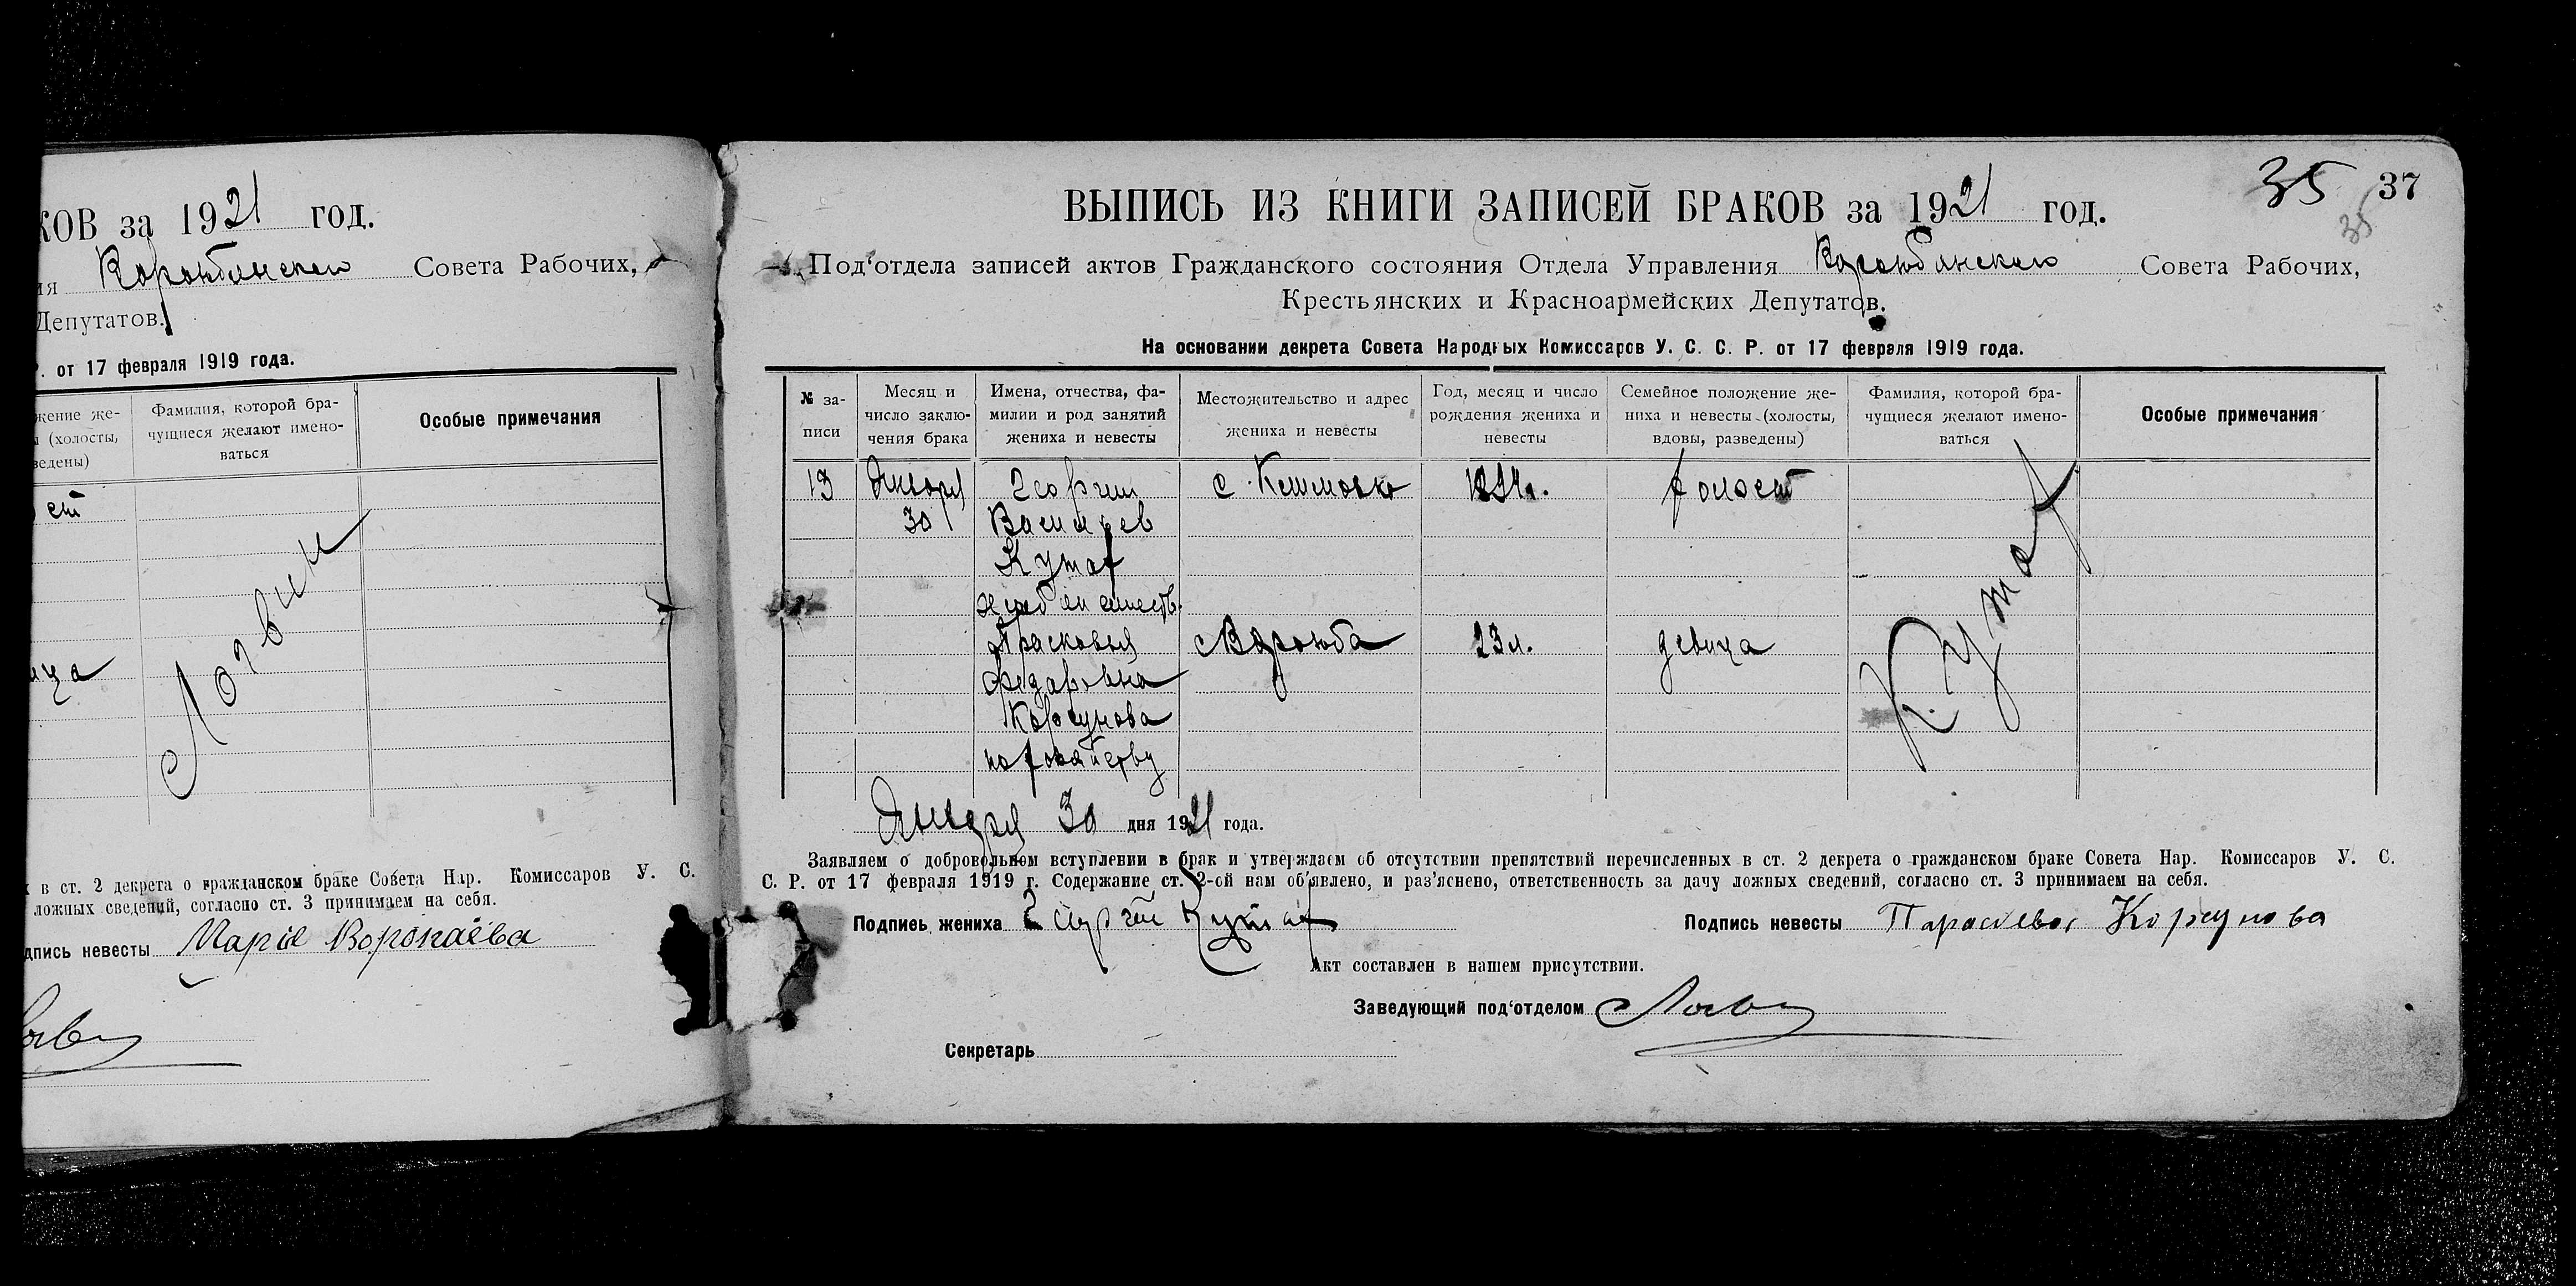 КОВ за 1921 год.
ия Ворожбянского Совета Рабочих,
Депутатов.
Р. от 17 февраля 1919 года.
жение же-
ы (холосты,
ведены)
Фамилия, которой бра-
чущиеся желают имено-
ваться
Особые примечания
ст
ица
Логвин
х в ст. 2 декрета о гражданском браке Совета Нар. Комиссаров У. С.
ложных сведений, согласно ст. 3 принимаем на себя.
дпись невесты Марія
35 37
35
ВЫПИСЬ ИЗ КНИГИ ЗАПИСЕЙ БРАКОВ за 1921 год.
Под'отдела записей актов Гражданского состояния Отдела Управления Ворожбянского Совета Рабочих,
Крестьянских и Красноармейских Депутатов.
На основании декрета Совета Народных Комиссаров У. С. С. Р. от 17 февраля 1919 года.
№ за-
писи
Месяц и
число заклю-
чения брака
Имена, отчества, фа-
милии и род занятий
жениха и невесты
Местожительство и адрес
жениха и невесты
Год, месяц и число
рождения жениха и
невесты
Семейное положение же-
ниха и невесты (холосты,
вдовы, разведены)
Фамилия, которой бра-
чущиеся желают имено-
ваться
Особые примечания
13 Января Георгий с. холост
30 Васильев
Кутах
Прасковья с Ворожба 23 л. девица
Федоровна
Корсунова
по хозяйству
Кутах
Января 30 дня 1921 года.
Заявляем о добровольном вступлении в брак и утверждаем об отсутствии препятствий перечисленных в ст. 2 декрета о гражданском браке Совета Нар. Комиссаров У. С.
С. Р. от 17 февраля 1919 г. Содержание ст. 2-ой нам об'явлено, и раз'яснено, ответственность за дачу ложных сведений, согласно ст. 3 принимаем на себя.
Подпись жениха Георгий Кутах Подпись невесты Корсунова
Акт составлен в нашем присутствии.
Заведующий под'отделом
Секретарь